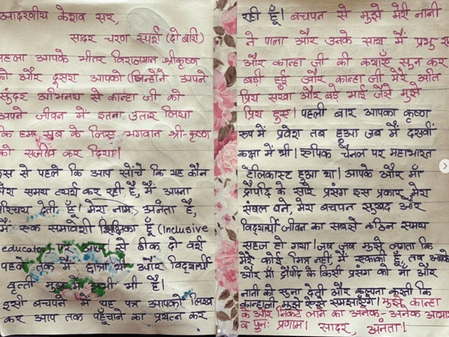 आदरणीय केशव सर,
सादर चरण स्पर्श (दो बार)
पहला आपके भीतर विराजमान श्रीकृष्ण
को और दूसरा आपको जिन्होंने अपने
सुंदर अभिनय से कान्हा जी को
अपने जीवन में इतना उतार लिया
कि हम सब के लिए भगवान श्री कृष्ण
को सजीव कर दिया।
इस से पहले कि आप सोचें कि यह कौन
मेरा समय व्यर्थ कर रही है, मैं अपना
परिचय देती हूँ। मेरा नाम अनंता है,
मैं एक समावेशी शिक्षिका हूँ (Inclusive
educator) से ठीक दो वर्ष
पहले तक मैं और विद्यार्थी
थी भी हूँ।
इसी बचपने यह पत्र आपको लिख
कर आप तक पहुँचाने का प्रयत्न कर
रही हूँ। बचपन से मुझे मेरी नानी
ने पाला और उनके साथ मैं प्रभु
और कान्हा जी की कथाएँ सुन कर
बड़ी हुई और कान्हा जी मेरे अति
प्रिय सखा और बड़े भाई जैसे मुझे
प्रिय हुए। पहली बार आपका कृष्णा
रूप में प्रवेश तब हुआ जब मैं दसवीं
कक्षा में थी। चैनल पर महाभारत
टेलिकास्ट हुआ था। आपके और माँ
द्रौपदी के सारे प्रसंग इस प्रकार मेरा
संबल बने, मेरा बचपन सुखद और
विद्यार्थी जीवन का सबसे कठिन समय
सहज हो गया। जब जब मुझे लगता कि
मेरे कोई मित्र नहीं, मैं तब आपके
और माँ द्रौपदी के किसी प्रसंग को माँ और
नानी को सुना देती और कल्पना करती कि
कान्हाजी मुझे ऐसे समझाएंगे। मुझे कान्हा
के और निकट लाने का अनेक-अनेक आभार
व पुनः प्रणाम। सादर अनंता।